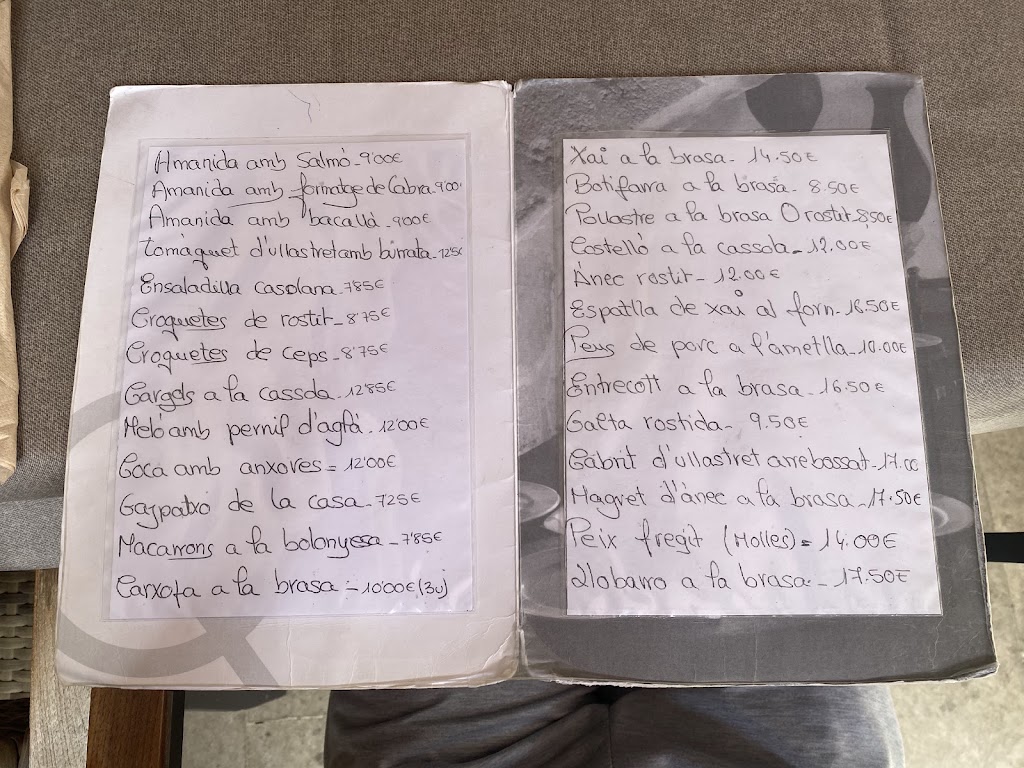 Amanida amb Salmó - 9'00€
Amanida amb formatge de Cabra - 9'00€
Amanida amb bacallà - 9'00€
Tomaquet d'ullastret amb burrata - 12'5€
Ensaladilla casolana - 7'85€
Croquetes de rostit - 8'75€
Croquetes de ceps - 8'75€
Cargols a la cassola - 12'85€
Meló amb pernil d'aglà - 12'00€
Coca amb anxoves = 12'00€
Gazpatxo de la casa - 7'25€
Macarrons a la bolonyesa - 7'85€
Carxofa a la brasa = 10'00€ (3u)
Xai a la brasa - 14.50€
Botifarra a la brasa - 8.50€
Pollastre a la brasa O rostit - 8,50€
Costelló a la cassola - 12.00€
Ànec rostit - 12.00€
Espatlla de xai al forn - 16.50€
Peus de porc a l'ametlla - 10.00€
Entrecott a la brasa - 16.50€
Galta rostida - 9.50€
Cabrit d'ullastret arrebossat - 17.00
Magret d'ànec a la brasa - 17.50€
Peix fregit (Molles) = 14.00€
Llobarro a la brasa - 17.50€